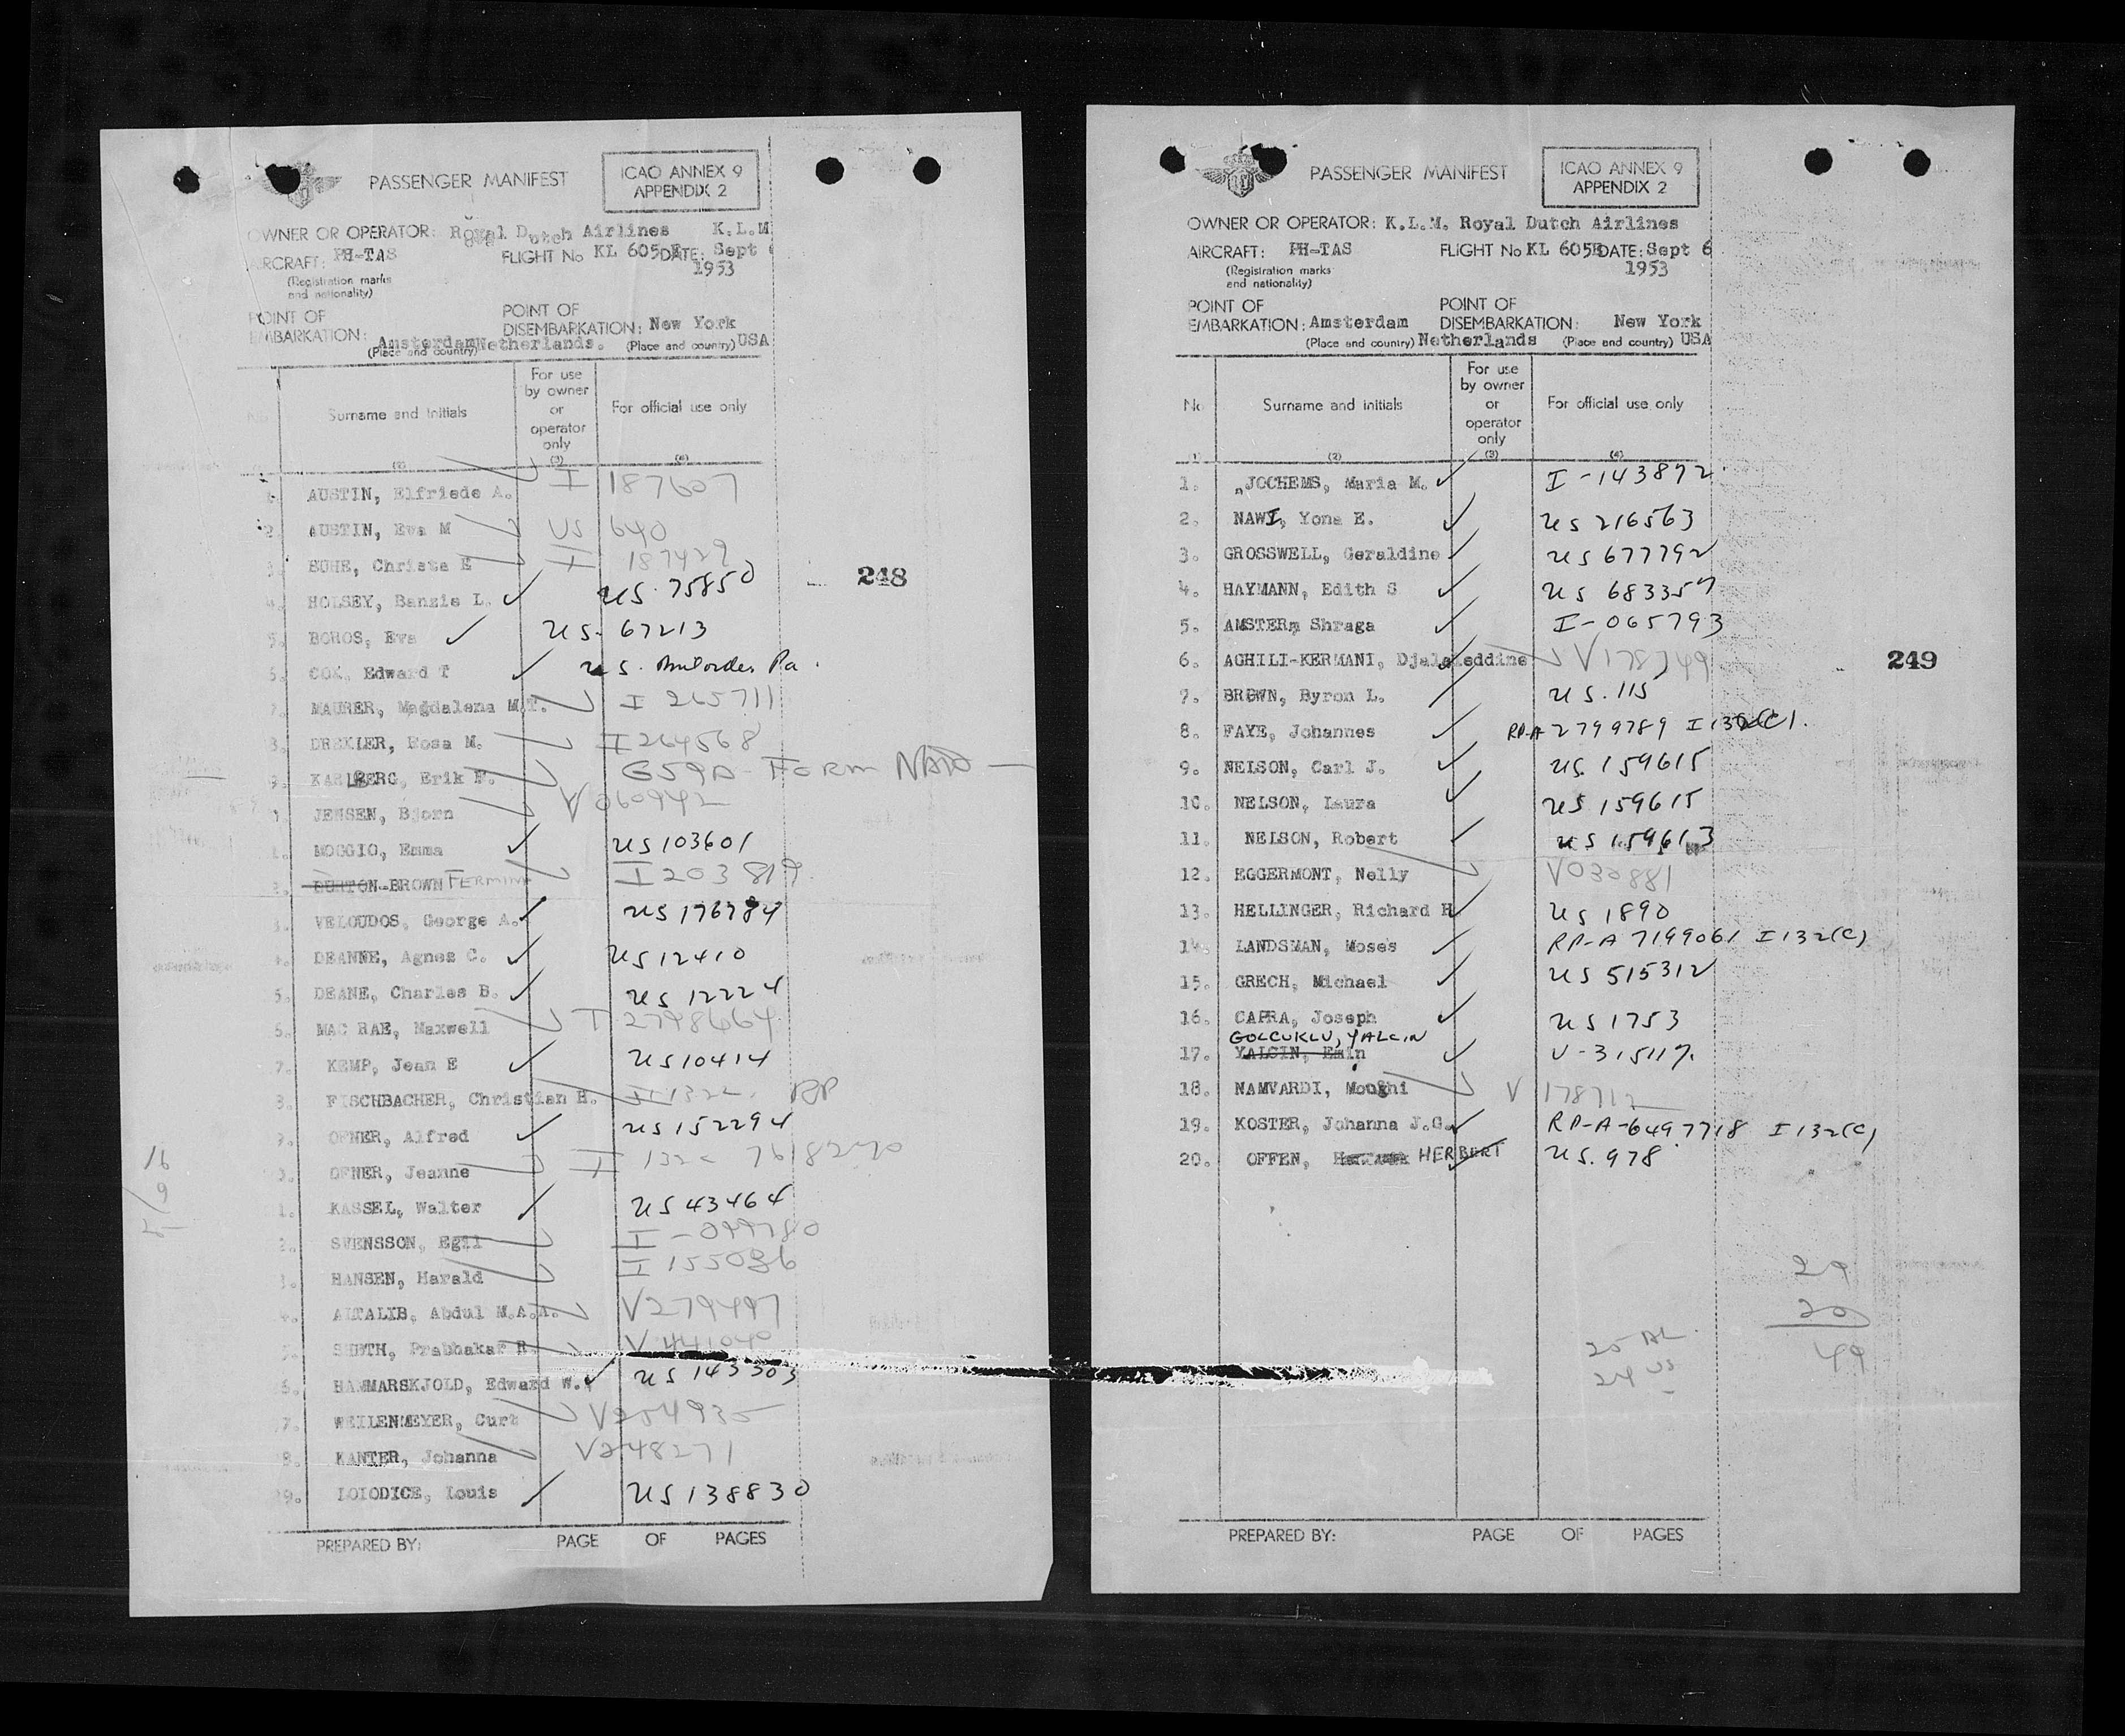 PASSENGER MANIFEST
ICAO ANNEX 9
APPENDIX 2
OWNER OR OPERATOR: Royal Dutch Airlines K.L.M
AIRCRAFT: PH-TAS FLIGHT No KL 605 DATE: Sept 6
1953
(Registration marks
and nationality)
POINT OF EMBARKATION: Amsterdam Netherlands.
(Place and country)
POINT OF DISEMBARKATION: New York USA
(Place and country)
Surname and initials
For use by owner or operator only
For official use only
(2) (3) (4)
1. AUSTIN, Elfriede A. I 187607
2. AUSTIN, Eva M US 640
3. BUHE, Christa E I 187429
4. HOLSEY, Banzie L. US. 75850
5. BOROS, Eva US. 67213
6. COX, Edward T US. Pa.
7. MAURER, Magdalena M.T. I 265711
8. DREXLER, Rosa M. I 264568
9. KARLBERG, Erik F. G59A - FORM NATO
JENSEN, Bjorn V 060942
1. MOGGIO, Emma US 103601
2. BURTON-BROWN FERMINA I 203819
3. VELOUDOS, George A. US 176784
4. DEANNE, Agnes C. US 12410
5. DEANE, Charles B. US 12224
6. MAC RAE, Maxwell I 2798664
7. KEMP, Jean E US 10414
8. FISCHBACHER, Christian H. I 132c. RP
9. OFNER, Alfred US 152294
0. OFNER, Jeanne I 132c 7618270
1. KASSEL, Walter US 43464
2. SVENSSON, Egil I-099780
3. HANSEN, Harald I 155086
4. ALTALIB, Abdul M.A.A. V 279497
5. Prabhakar R. V 441040
6. HAMMARSKJOLD, Edward W. US 143303
7. WEILENMEYER, Curt V 254935
8. KANTER, Johanna V 248271
29. LOIODICE, Louis US 138830
PREPARED BY: PAGE OF PAGES
248
16
9
PASSENGER MANIFEST
ICAO ANNEX 9
APPENDIX 2
OWNER OR OPERATOR: K.L.M. Royal Dutch Airlines
AIRCRAFT: PH-TAS FLIGHT No KL 605E DATE: Sept 6
1953
(Registration marks
and nationality)
POINT OF EMBARKATION: Amsterdam Netherlands
(Place and country)
POINT OF DISEMBARKATION: New York USA
(Place and country)
No Surname and initials
For use by owner or operator only
For official use only
(1) (2) (3) (4)
1. JOCHEMS, Maria M. I-143872
2. NAWI, Yona E. US 216563
3. GROSSWELL, Geraldine US 677792
4. HAYMANN, Edith S US 683357
5. AMSTER, Shraga I-065793
6. AGHILI-KERMANI, Djalaleddine V178749
7. BROWN, Byron L. US. 115
8. FAYE, Johannes RP-A 2799789 I 132(C).
9. NELSON, Carl J. US. 159615
10. NELSON, Laura US 159615
11. NELSON, Robert US 159613
12. EGGERMONT, Nelly V030881
13. HELLINGER, Richard H US 1890
14. LANDSMAN, Moses RP-A 7199061 I 132(C)
15. GRECH, Michael US 515312
16. CAPRA, Joseph US 1753
GOLCUKLU, YALCIN
17. YALCIN, Emin V-315117.
18. NAMVARDI, Moughi V 178712
19. KOSTER, Johanna J.G. RP-A-6497718 I 132(C)
20. OFFEN, HERBERT US. 978
29
20
49
25 AL.
24 US
PREPARED BY: PAGE OF PAGES
249